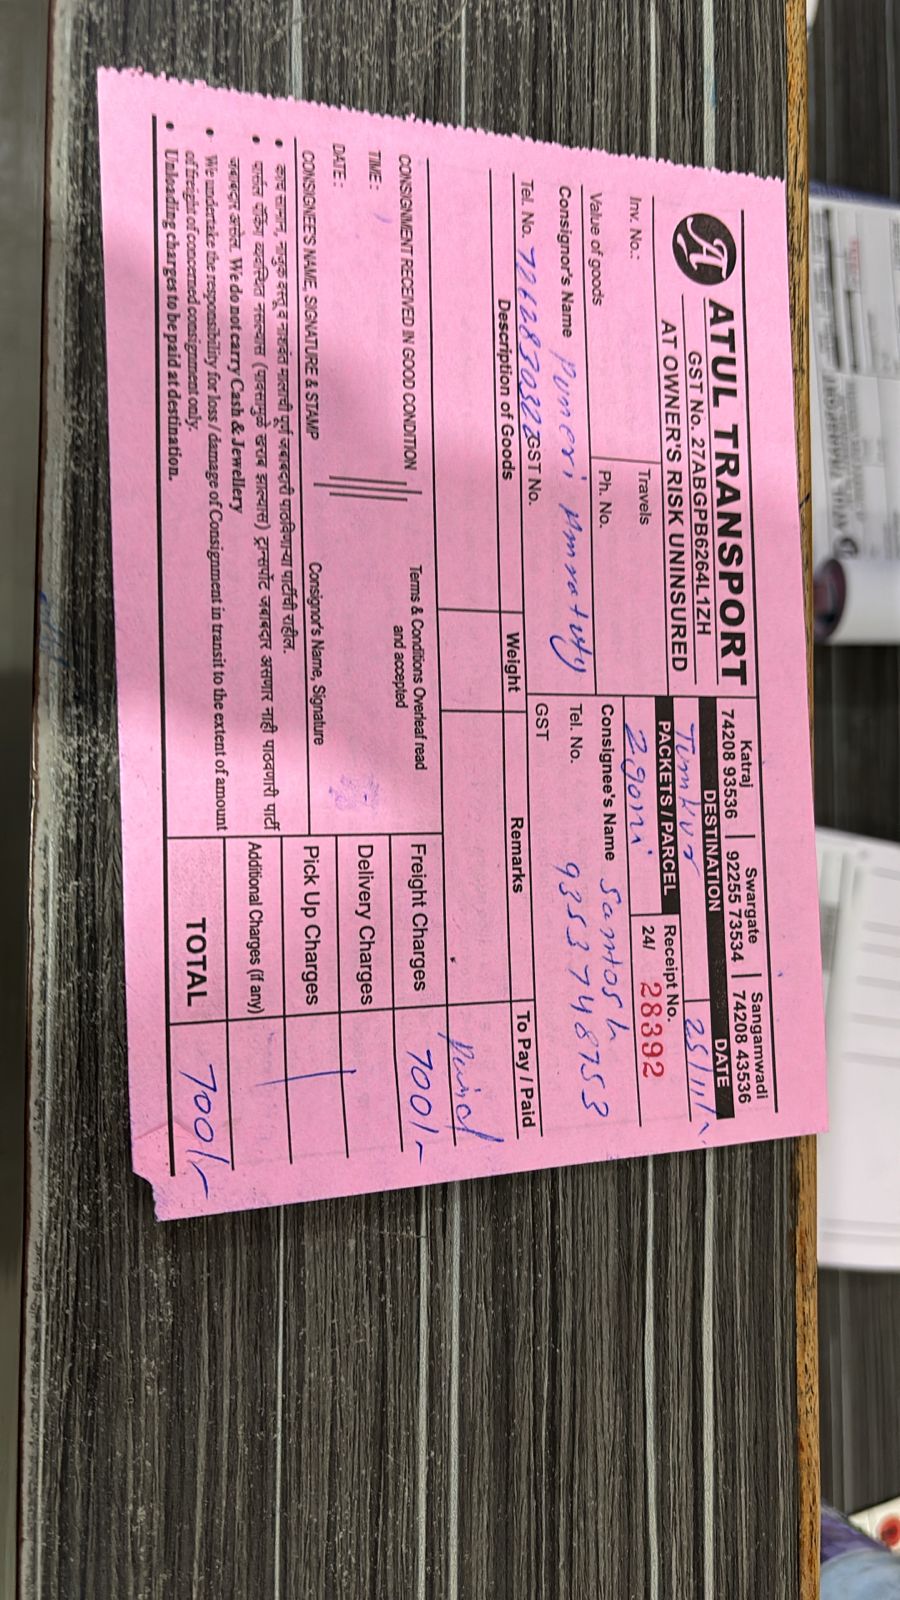 ATUL TRANSPORT
GST No. 27ABGPB6264L1ZH
AT OWNER'S RISK UNINSURED
Katraj 74208 93536 | Swargate 92255 73534 | Sangamwadi 74208 43536
DESTINATION DATE
Tumkur 25/11/
PACKETS / PARCEL Receipt No.
2 goni 24/ 28392
Inv. No.: Travels
Value of goods Ph. No.
Consignor's Name Puneri Amratuly
Consignee's Name Santosh
Tel. No. 7262830322 GST No.
Tel. No. 9353748753
GST
Description of Goods Weight Remarks To Pay / Paid
Paid
CONSIGNMENT RECEIVED IN GOOD CONDITION
Terms & Conditions Overleaf read and accepted
Freight Charges 700/-
TIME :
Delivery Charges
DATE :
Pick Up Charges
CONSIGNEE'S NAME, SIGNATURE & STAMP Consignor's Name, Signature
Additional Charges (if any)
• काच सामान, नाजुक वस्तू व नाशवंत मालाची पूर्ण जबाबदारी पाठविणाऱ्या पार्टीची राहील.
• पार्सल पॅकिंग व्यवस्थित नसल्यास (पावसामुळे खराब झाल्यास) ट्रान्सपोर्ट जबाबदार असणार नाही पाठवणारी पार्टी
जबाबदार असेल. We do not carry Cash & Jewellery
• We undertake the responsibility for loss / damage of Consignment in transit to the extent of amount
of freight of concerned consignment only.
• Unloading charges to be paid at destination.
TOTAL 700/-